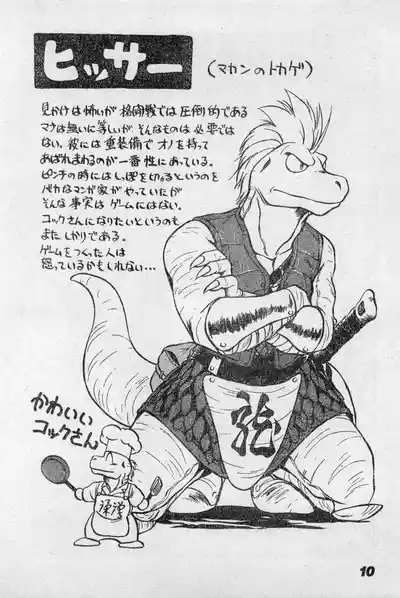 ヒッサー
(マカンのトカゲ)
見かけは怖いが 格闘戦では圧倒的である
マナは無いに等しいが、そんなものは必要では
ない。彼には重装備で オノを持って
あばれまわるのが一番性にあっている。
ピンチの時にはしっぽを切るというのを
バカなマンガ家がやっていたが
そんな事実はゲームにはない。
コックさんになりたいというのも
またしかりである。
ゲームをつくった人は
怒っているかもしれない…
かわいい
コックさん
龍
10